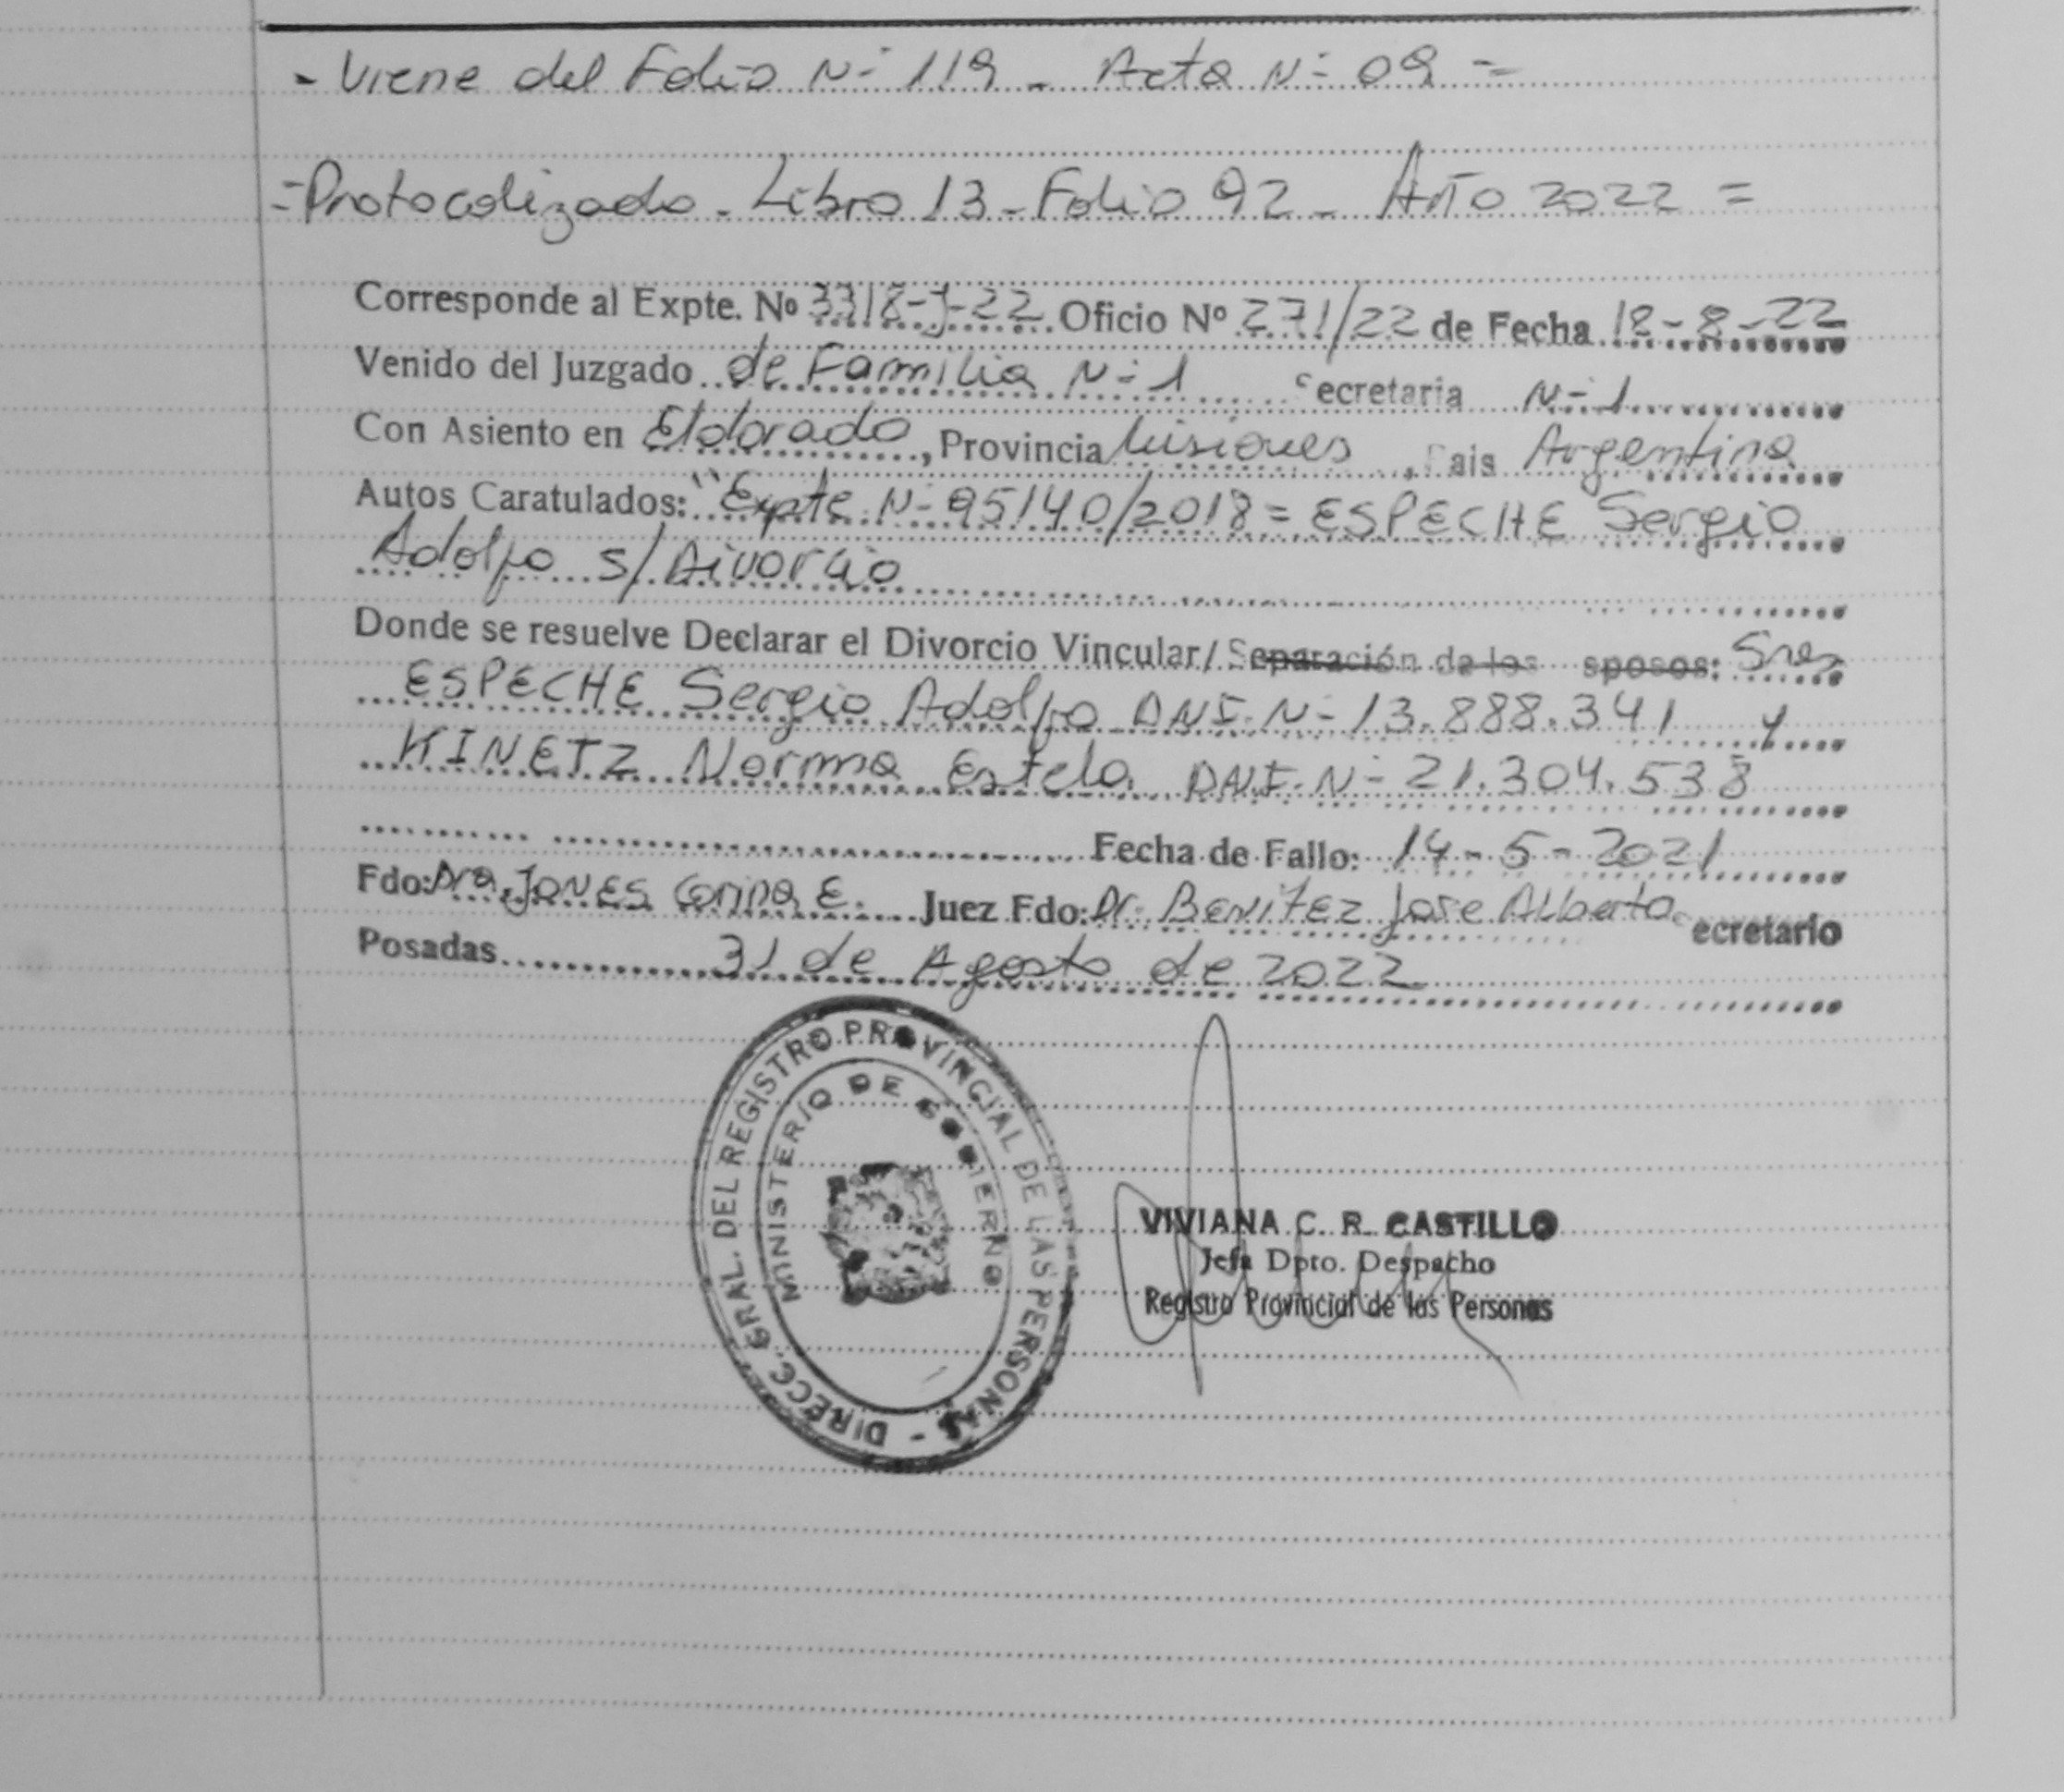 - Viene del Folio Nº 119 - Acta Nº 09 =
= Protocolizado - Libro 13 - Folio 92 - Año 2022 =
Corresponde al Expte. Nº 3318-J-22 Oficio Nº 271/22 de Fecha 18-8-22
Venido del Juzgado de Familia Nº 1 ecretaria Nº 1
Con Asiento en Eldorado, Provincia Misiones, Pais Argentina
Autos Caratulados: "Expte Nº 95140/2018 = ESPECHE Sergio
Adolfo s/ Divorcio
Donde se resuelve Declarar el Divorcio Vincular/ Separación de los sposos: Sres
ESPECHE Sergio Adolfo DNI. Nº 13.888.341 y
KINETZ Norma Estela DNI. Nº 21.304.538
Fecha de Fallo: 14-5-2021
Fdo: Dra. JONES Corina E. Juez Fdo: Dr. Benitez Jose Alberto ecretario
Posadas 31 de Agosto de 2022
DIRECC. GRAL. DEL REGISTRO PROVINCIAL DE LAS PERSONAS -
MINISTERIO DE GOBIERNO
VIVIANA C. R. CASTILLO
Jefa Dpto. Despacho
Registro Provincial de las Personas